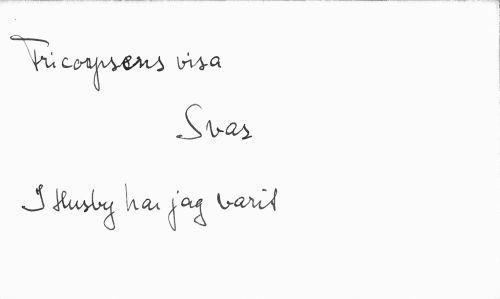 visa
Svar
I Husby har jag varit